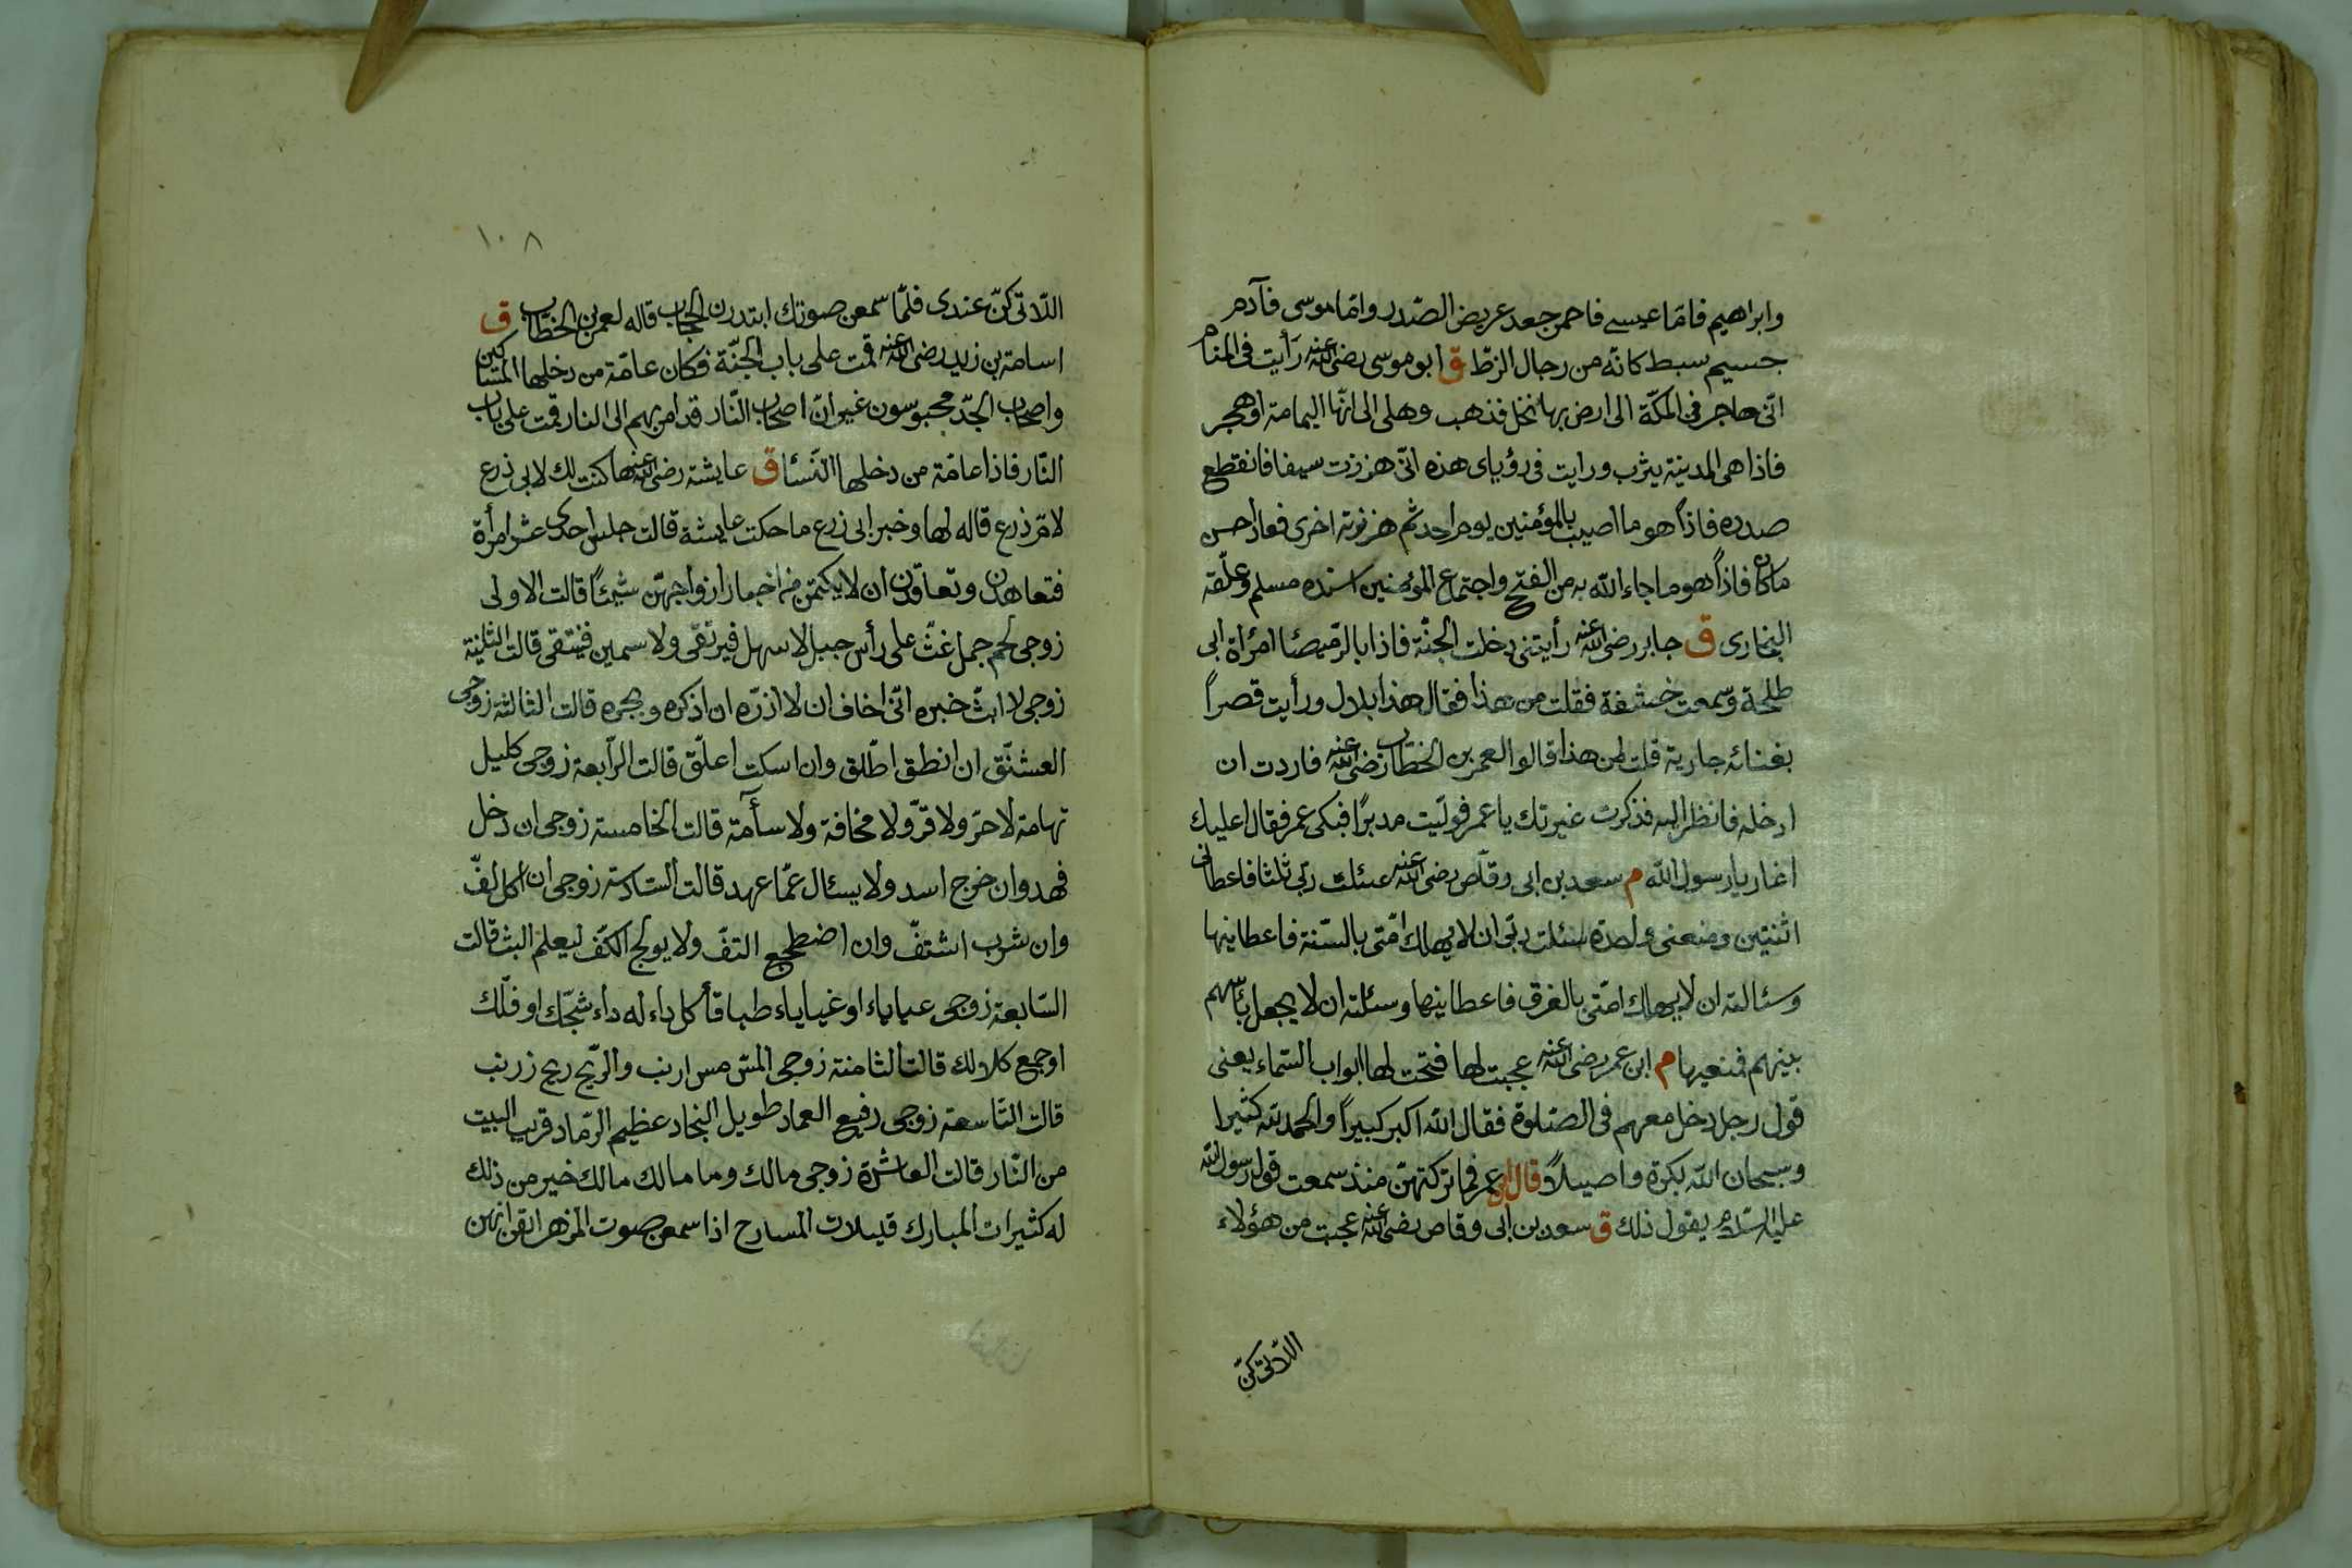 وابراهيم فامّا عيسى فاحمر جعد عريض الصّدر وامّا موسى فآدم
جسيم سبط كانّه من رجال الزطّ ق ابو موسى رضى الله عنه رأيت فى المنام
انّى هاجر فى المكّة الى ارض بها نخل فذهب وهلى الى انّها اليمامة او هجر
فاذا هى المدينة يثرب ورايت فى رؤياى هذه انّى هززت سيفا فانقطع
صدره فاذا هو ما اصيب بالمؤمنين يوم احد ثم هززته اخرى فعاد احسن
ما كان فاذا هو ما جاء الله به من الفتح واجتماع المؤمنين اسنده مسلم وعلّقه
البخارى ق جابر رضى الله عنه رأيتنى دخلت الجنّة فاذا بالرّميصا امرأة ابى
طلحة وسمعت خشفة فقلت من هذا فقال هذا بلال ورأيت قصراً
بفنائه جارية قلت لمن هذا قالوا لعمر بن الخطاب رضى الله عنه فاردت ان
ادخله فانظر اليه فذكرت غيرتك يا عمر فولّيت مدبرًا فبكى عمر فقال اعليك
اغار يا رسول الله م سعد بن ابى وقّاص رضى الله عنه سئلت ربّى ثلثا فاعطانى
اثنتين ومنعنى واحدة سئلت ربّى ان لا يهلك امّتى بالسّنة فاعطانيها
وسئالته ان لا يهلك امّتى بالغرق فاعطانيها وسئلته ان لا يجعل بأسهم
بينهم فمنعيها م ابن عمر رضى الله عنه عجبت لها فتحت لها ابواب السّماء يعنى
قول رجل دخل معهم فى الصّلوة فقال الله اكبر كبيراً والحمد لله كثيرا
وسبحان الله بكرة واصيلاً قال ابن عمر فما تركتهنّ منذ سمعت قول رسول الله
عليه السّلام يقول ذلك ق سعد بن ابى وقاص رضى الله عنه عجبت من هؤلاء
اللّاتى كنّ
١٠٨
اللّاتى كنّ عندى فلمّا سمعن صوتك ابتدرن الحجاب قاله لعمر بن الخطاب ق
اسامة بن زيد رضى الله عنه قمت على باب الجنّة فكان عامّة من دخلها المساكين
واصحاب الجدّ محبوسون غير انّ اصحاب النّار قد امر بهم الى النار وقمت على باب
النّار فاذا عامّة من دخلها النّسا ق عايشة رضى الله عنها كنت لك لابى زرع
لامّ زرع قاله لها وخبر ابى زرع ما حكت عايشة قالت جلس احدى عشر امرأة
فتعاهدن وتعاقدن ان لا يكتمن من اخبار ازواجهنّ شيئاً قالت الاولى
زوجى لحم جمل غثّ على رأس جبل لا سهل فيرتقى ولا سمين فينتقى قالت الثانية
زوجى لا ابثّ خبره انّى اخاف ان لا اذره ان اذكره وبجره قالت الثالثة زوجى
العشنّق ان انطق اطلّق وان اسكت اعلّق قالت الرّابعة زوجى كليل
تهامة لا حرّ ولا قرّ ولا مخافة ولا سأمة قالت الخامسة زوجى ان دخل
فهد وان خرج اسد ولا يسئال عمّا عهد قالت السّادسة زوجى ان اكل لفّ
وان شرب اشتفّ وان اضطجع التفّ ولا يولج الكفّ ليعلم البثّ قالت
السّابعة زوجى عياياء او غياياء طباقاً كل داء له داء شجّك او فلّك
او جمع كلا لك قالت الثامنة زوجى المسّ مس ارنب والرّيح ريح زرنب
قالت التّاسعة زوجى رفيع العماد طويل النجاد عظيم الرّماد قريب البيت
من النّار قالت العاشرة زوجى مالك وما مالك مالك خير من ذلك
له كثيرات المبارك قليلات المسارح اذا سمعن صوت المزهر ايقنّ انهن